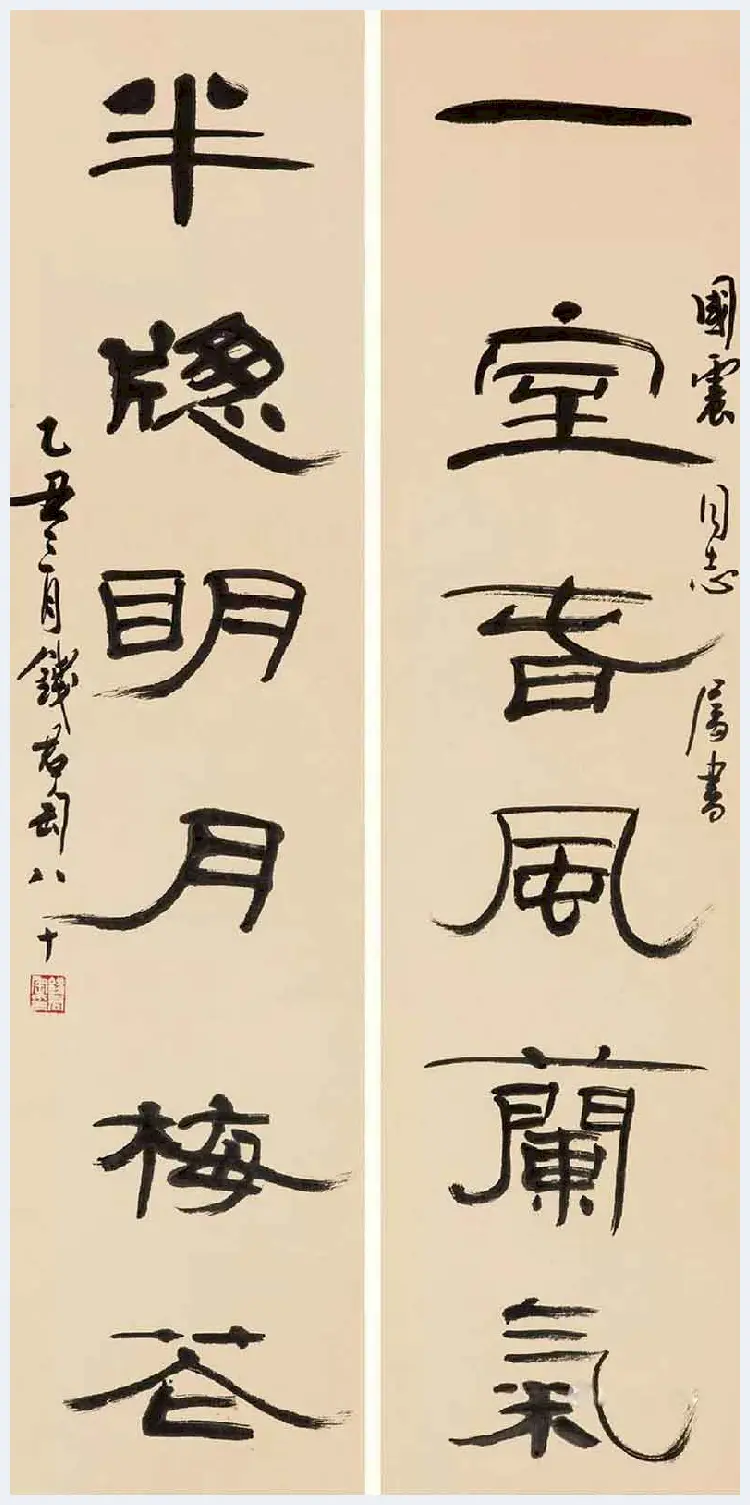 國震同志属書
一室旾風蘭氣
半牕明月梅花
乙丑三月錢君匋八十